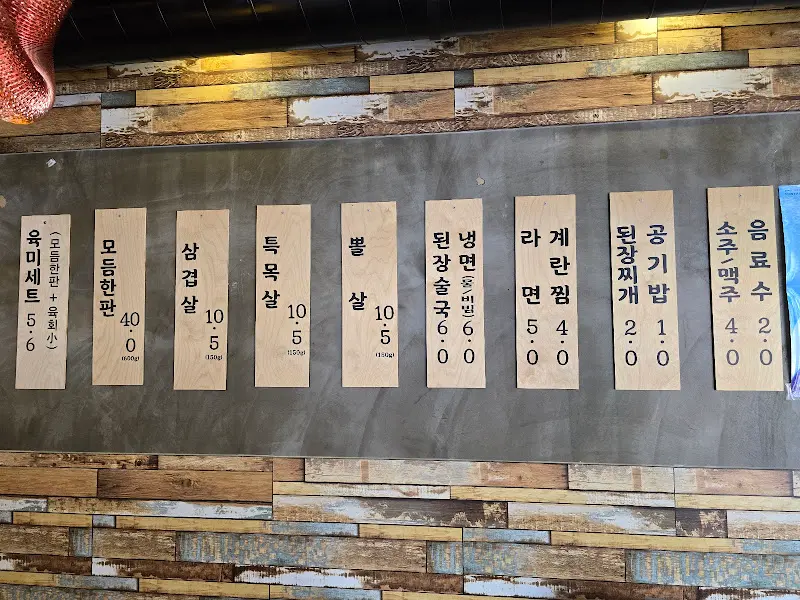 육미세트 5.6
(모듬한판 + 육회小)
모듬한판 40.0
(600g)
삼겹살 10.5
(150g)
특목살 10.5
(150g)
뽈살 10.5
(150g)
된장술국 6.0
냉면(물/비빔) 6.0
라면 5.0
계란찜 4.0
된장찌개 2.0
공기밥 1.0
소주/맥주 4.0
음료수 2.0